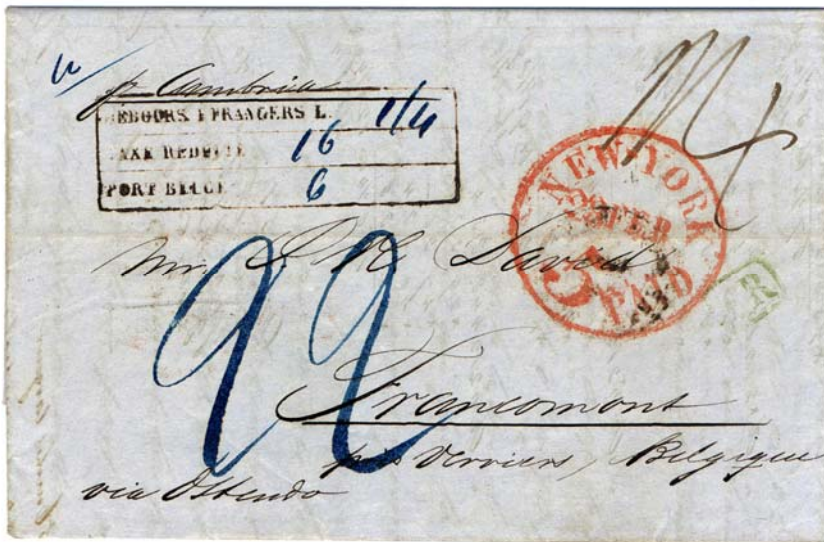 p Cambria
DÉBOURS ÉTRANGERS L. 1/4
TAXE RÉDUITE 16
PORT BELGE 6
NEW-YORK
5
PAID
Mr. David
22
Francomont
près Verviers, Belgique
via Ostende
R